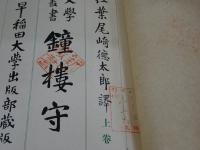 紅葉尾崎德太郎譯
上卷
鐘樓守
文學叢書
早稻田大學出版部藏版